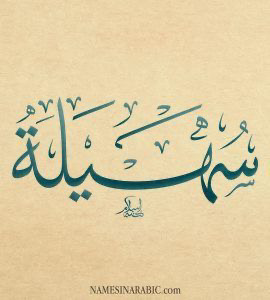 سُهَيْلَةُ
NAMESINARABIC.com